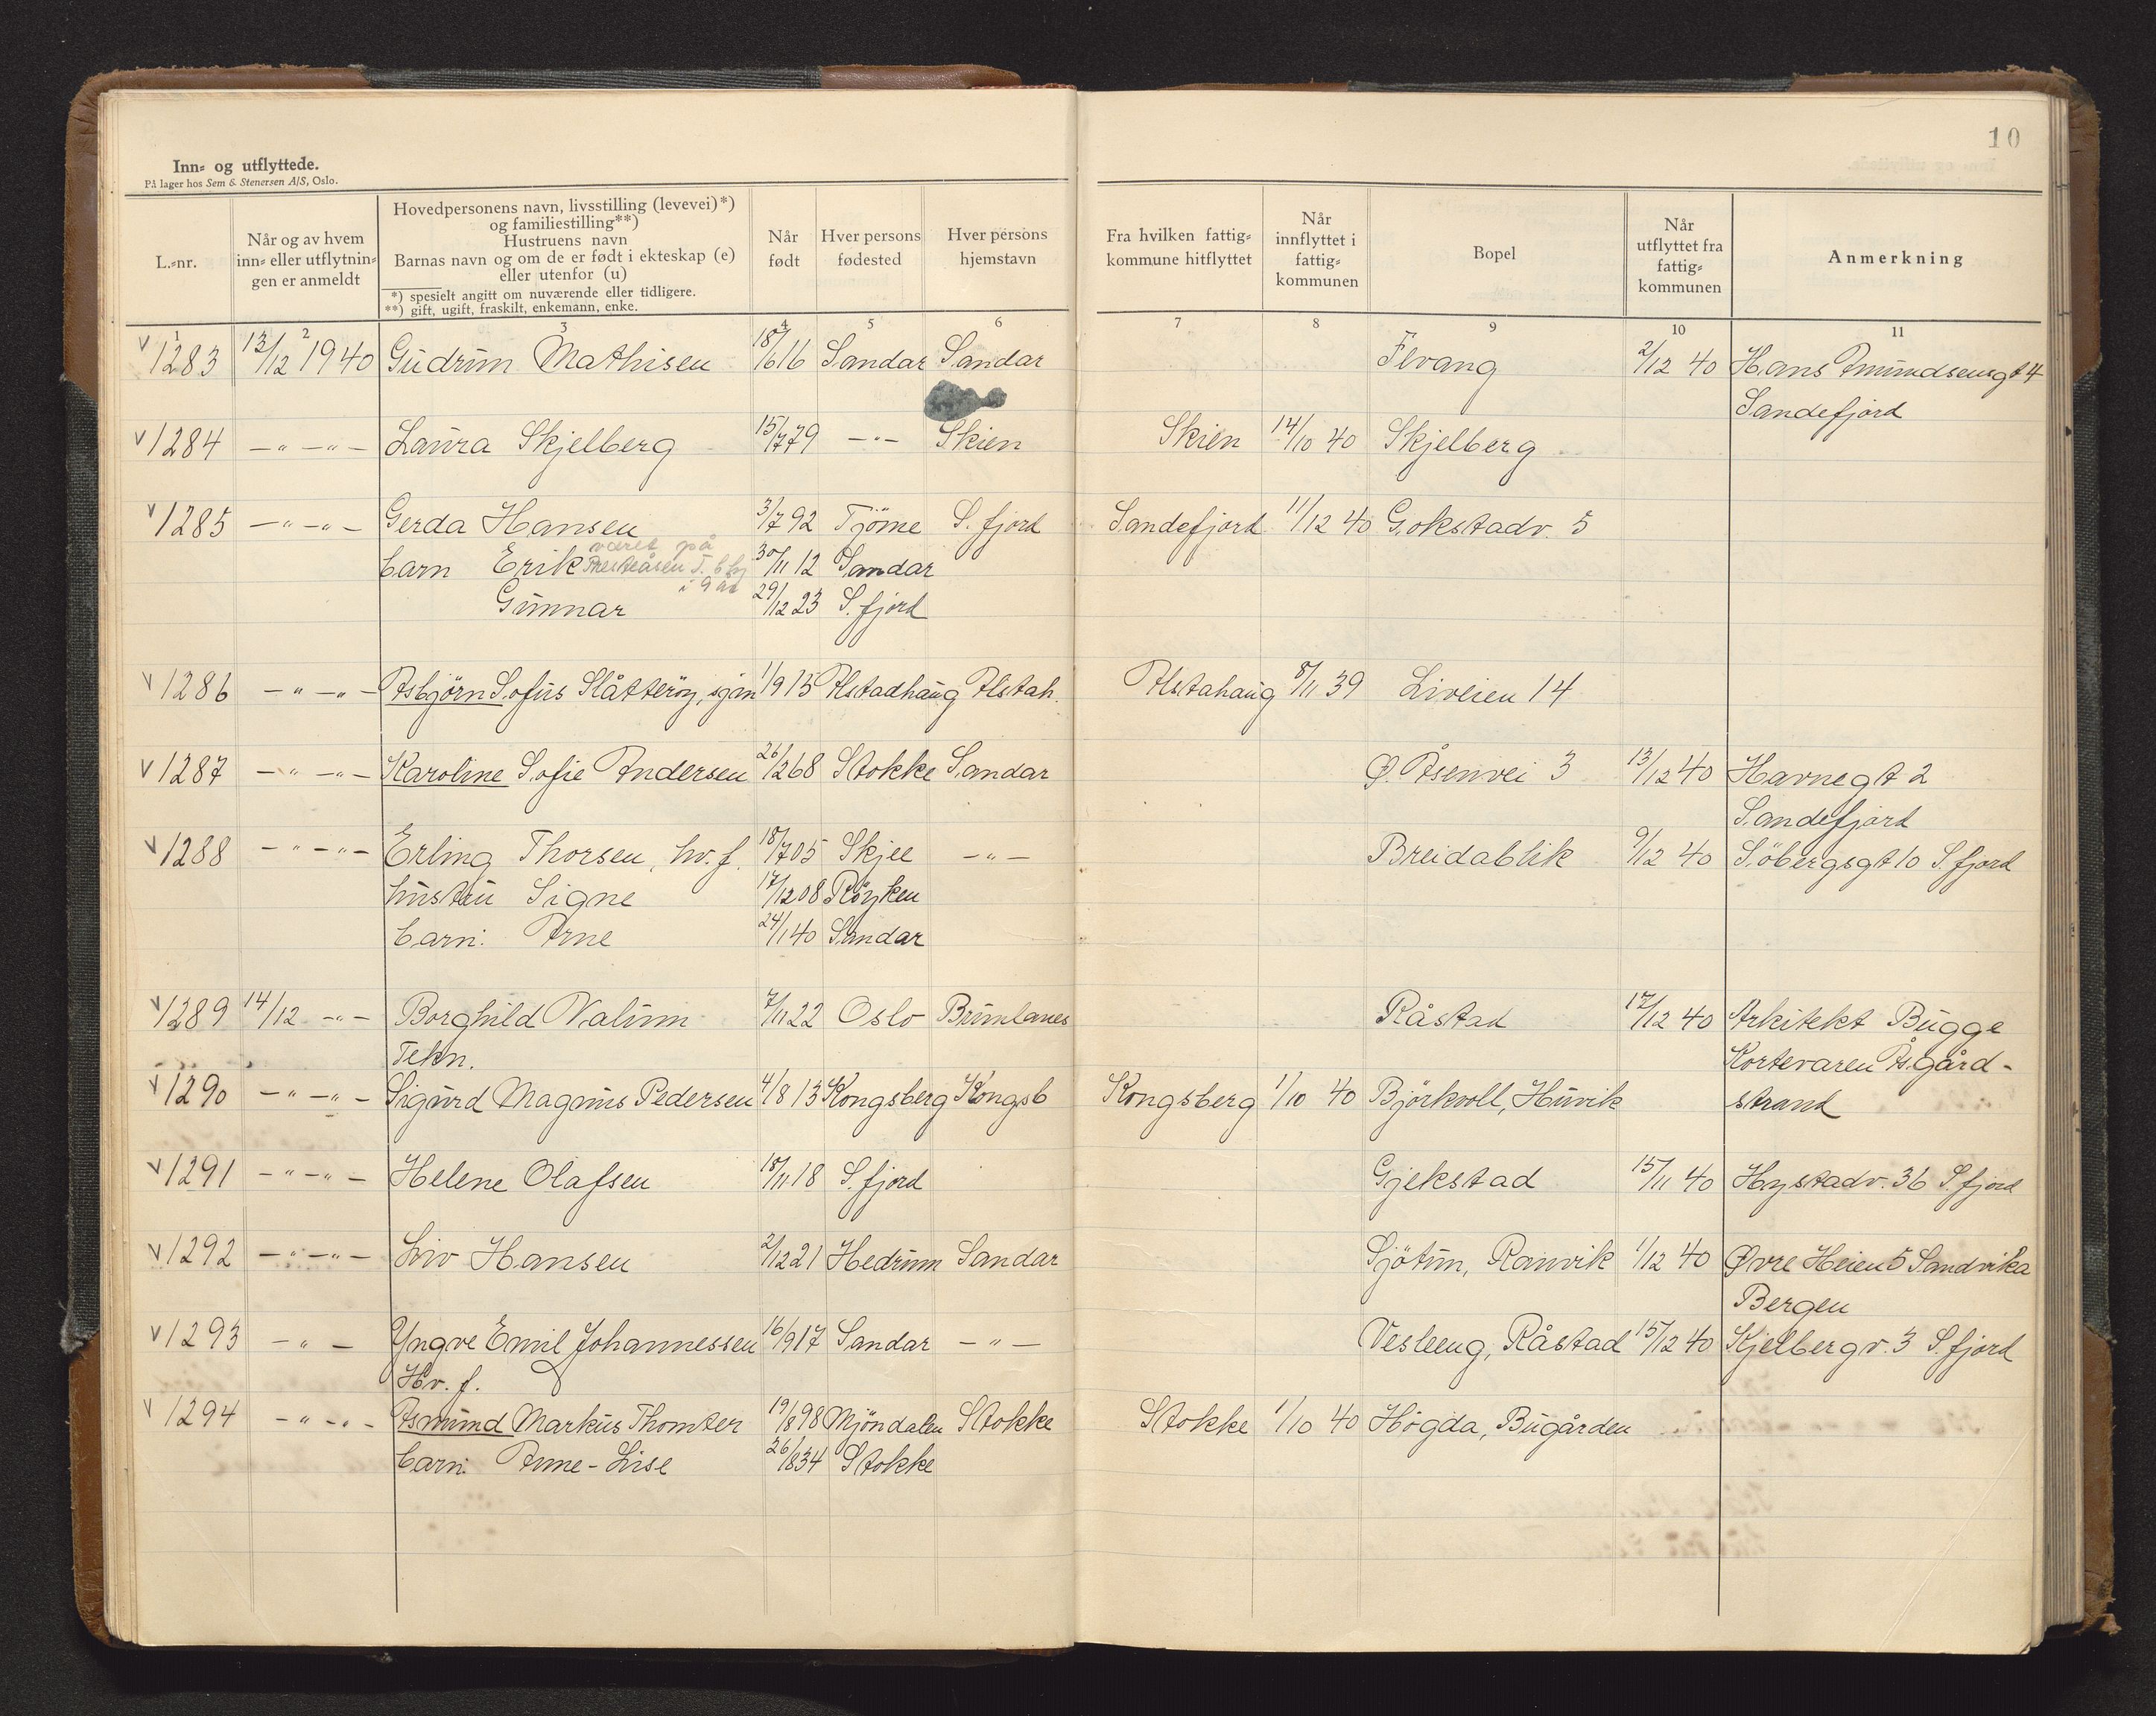 10
Inn- og utflyttede.
På lager hos Sem & Stenersen A/S, Oslo.
L.-nr.
Når og av hvem inn- eller utflytnin- gen er anmeldt
Hovedpersonens navn, livsstilling (levevei) *)
og familiestilling**)
Hustruens navn
Barnas navn og om de er født i ekteskap (e)
eller utenfor (u)
*) spesielt angitt om nuværende eller tidligere.
**) gift, ugift, fraskilt, enkemann, enke.
Når født
Hver persons fødested
Hver persons hjemstavn
Fra hvilken fattig- kommune hitflyttet
Når innflyttet i fattig- kommunen
Bopel
Når utflyttet fra fattig- kommunen
Anmerkning
1 2 3 4 5 6 7 8 9 10 11
V 1283 13/12 1940 Gudrun Mathisen 18/6 16 Sandar Sandar Flvang 2/12 40 Hans Amundsensgt 4
Sandefjord
V 1284 —"—"— Laura Skjelberg 15/7 79 —"— Skien Skien 14/10 40 Skjelberg
V 1285 —"—"— Gerda Hansen 3/7 92 Tjöme S. fjord Sandefjord 11/12 40 Gokstadv. 5
været på
barn Erik Presteåsen T. b 30/11 12 Sandar
i 9 år
Gunnar 29/12 23 S. fjord
V 1286 —"—"— Asbjörn Sofus Slåtteröy, sjøm 1/9 15 Alstadhaug Alstah. Alstahaug 8/11 39 Liveien 14
V 1287 —"—"— Karoline Sofie Andersen 26/12 68 Stokke Sandar Ø. Åsenvei 3 13/12 40 Havnegt 2
Sandefjord
V 1288 —"—"— Erling Thorsen, hv. f. 18/7 05 Skjee —"— Breidablik 9/12 40 Söbergsgt 10 S. fjord
hustru Signe 17/12 08 Röyken
barn: Arne 24/1 40 Sandar
V 1289 14/12 —"— Borghild Valum 7/11 22 Oslo Brunlanes Råstad 17/12 40 Arkitekt Bugge
Tekn. Kortevaren Åsgård-
V 1290 —"—"— Sigurd Magnus Pedersen 4/8 13 Kongsberg Kongsb Kongsberg 1/10 40 Björkvoll, Huvik strand
V 1291 —"—"— Helene Olafsen 18/11 18 S. fjord Gjekstad 15/11 40 Hystadv. 36 S. fjord
V 1292 —"—"— Liv Hansen 2/12 21 Hedrum Sandar Sjötun, Ranvik 1/12 40 Øvre Heien 5 Sandvika
Bergen
V 1293 —"— Yngve Emil Johannessen 16/9 17 Sandar —"— Vesleeng, Råstad 15/12 40 Kjelbergv. 3 S. fjord
Hv. f.
V 1294 —"—"— Asmund Markus Thomter 19/8 98 Mjöndalen Stokke Stokke 1/10 40 Högda, Bugården
barn: Anne-Lise 26/8 34 Stokke